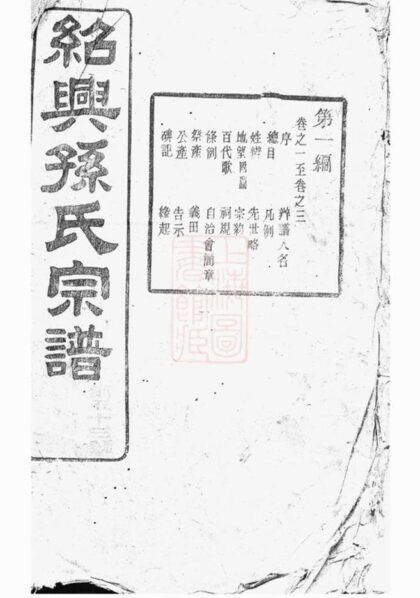 紹興孫氏宗譜
第一綱
卷之一至卷之三
序 議人名
總目 凡例
姓辨 先世略
地望圖 宗約
百代歌 祠規
條例 自治會簡章
祭產 義田
公產 告示
碑記 緣起
上海圖書館藏